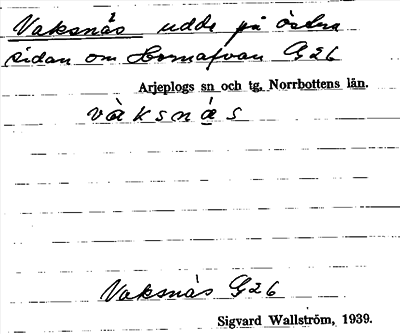 Vaksnäs udde på östra
sidan om Hornafvan G26
Arjeplogs sn och tg, Norrbottens län.
vàksnás
Vaksnäs G26
Sigvard Wallström, 1939.